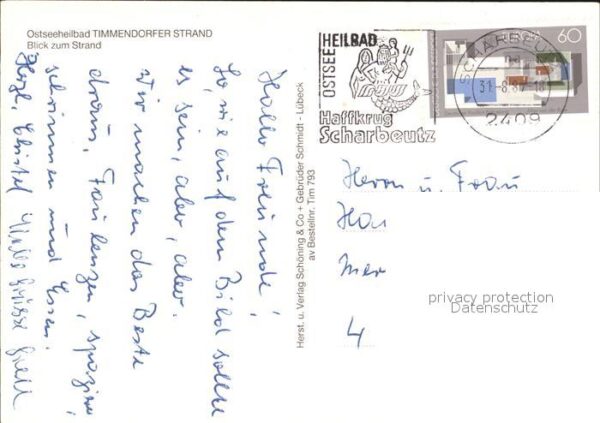 Ostseeheilbad TIMMENDORFER STRAND
Blick zum Strand
Hallo Freunde!
So, wie auf dem Bild sollte
es sein, aber, aber.
Wir machen das Beste
draus. Faulenzen, spazieren
schwimmen und Essen!
Herzl. Christel
Viele Grüße
Herst. u. Verlag Schöning & Co + Gebrüder Schmidt - Lübeck
av Bestellnr. Tim 793
OSTSEE HEILBAD
Haffkrug
Scharbeutz
SCHARBEUTZ
31.-8.87-18
2409
60
Herrn u. Frau
Han
Mer
4
privacy protection
Datenschutz